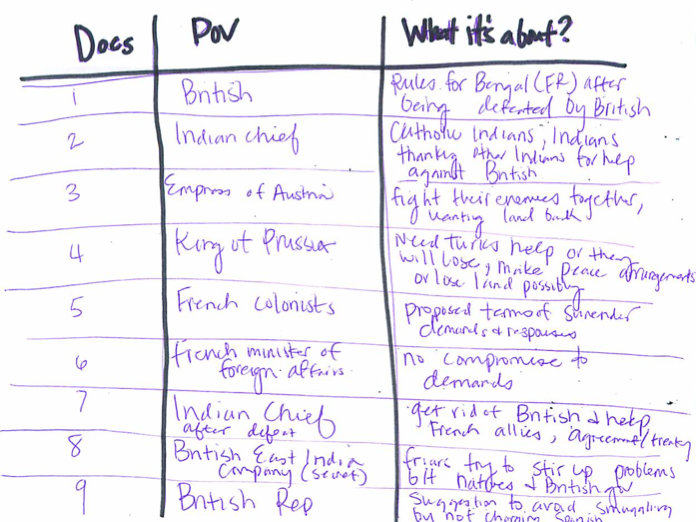 Docs POV What it's about?
1 British Rules for Bengal (FR) after
being defeated by British
2 Indian chief Catholic Indians, Indians
thanking other Indians for help
against British
3 Empress of Austria fight their enemies together,
wanting land back
4 King of Prussia Need turks help or they
will lose, make peace arrangements
or lose land possibly
5 French colonists proposed terms of surrender
demands & responses
6 French minister of
foreign affairs no compromise to
demands
7 Indian Chief
after defeat get rid of British & help
French allies, agreement/treaty
8 British East India
Company (secret) friars try to stir up problems
b/t natives & British
9 British Rep Suggestion to avoid smuggling
by not charging